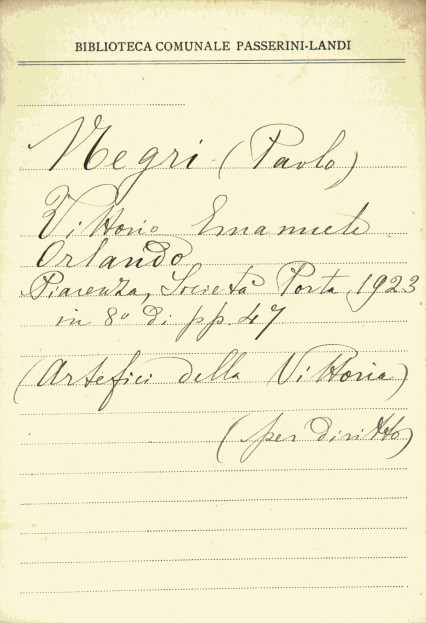 BIBLIOTECA COMUNALE PASSERINI-LANDI
Negri (Paolo)
Vittorio Emanuele
Orlando
Piacenza, Società Porta 1923
in 8° di pp. 47
(Artefici della Vittoria)
(per diritto)